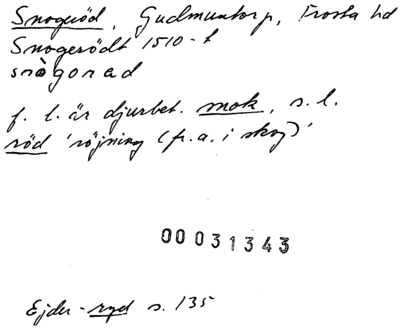 Snogeröd, Gudmuntorp, Frosta hd
Snogerödt 1510-t
snògorad
f. l. är djurbet. snok, s. l.
röd 'röjning (fr. a. i skog)'
00031343
Ejder-ryd s. 135